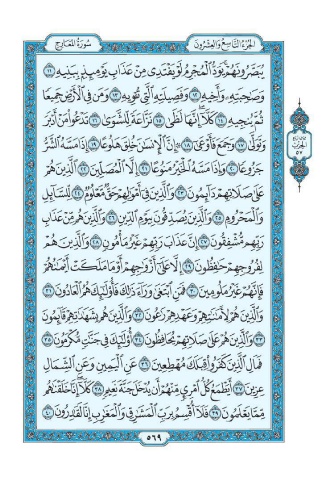 سُورَةُ المَعَارِجِ
الجُزْءُ التَّاسِعُ وَالعِشْرُونَ
يُبَصَّرُونَهُمْ يَوَدُّ الْمُجْرِمُ لَوْ يَفْتَدِى مِنْ عَذَابِ يَوْمِئِذٍ بِبَنِيهِ ١١
وَصَاحِبَتِهِ وَأَخِيهِ ١٢ وَفَصِيلَتِهِ الَّتِى تُـْٔوِيهِ ١٣ وَمَن فِى الْأَرْضِ جَمِيعًا
ثُمَّ يُنجِيهِ ١٤ كَلَّا إِنَّهَا لَظَىٰ ١٥ نَزَّاعَةً لِّلشَّوَىٰ ١٦ تَدْعُوا مَنْ أَدْبَرَ
وَتَوَلَّىٰ ١٧ وَجَمَعَ فَأَوْعَىٰ ١٨ إِنَّ الْإِنسَٰنَ خُلِقَ هَلُوعًا ١٩ إِذَا مَسَّهُ الشَّرُّ
جَزُوعًا ٢٠ وَإِذَا مَسَّهُ الْخَيْرُ مَنُوعًا ٢١ إِلَّا الْمُصَلِّينَ ٢٢ الَّذِينَ هُمْ
عَلَىٰ صَلَاتِهِمْ دَآئِمُونَ ٢٣ وَالَّذِينَ فِىٓ أَمْوَٰلِهِمْ حَقٌّ مَّعْلُومٌ ٢٤ لِّلسَّآئِلِ
وَالْمَحْرُومِ ٢٥ وَالَّذِينَ يُصَدِّقُونَ بِيَوْمِ الدِّينِ ٢٦ وَالَّذِينَ هُم مِّنْ عَذَابِ
رَبِّهِم مُّشْفِقُونَ ٢٧ إِنَّ عَذَابَ رَبِّهِمْ غَيْرُ مَأْمُونٍ ٢٨ وَالَّذِينَ هُمْ
لِفُرُوجِهِمْ حَٰفِظُونَ ٢٩ إِلَّا عَلَىٰٓ أَزْوَٰجِهِمْ أَوْ مَا مَلَكَتْ أَيْمَٰنُهُمْ
فَإِنَّهُمْ غَيْرُ مَلُومِينَ ٣٠ فَمَنِ ابْتَغَىٰ وَرَآءَ ذَٰلِكَ فَأُولَٰٓئِكَ هُمُ الْعَادُونَ ٣١
وَالَّذِينَ هُمْ لِأَمَٰنَٰتِهِمْ وَعَهْدِهِمْ رَٰعُونَ ٣٢ وَالَّذِينَ هُم بِشَهَٰدَٰتِهِمْ قَآئِمُونَ
٣٣ وَالَّذِينَ هُمْ عَلَىٰ صَلَاتِهِمْ يُحَافِظُونَ ٣٤ أُولَٰٓئِكَ فِى جَنَّٰتٍ مُّكْرَمُونَ ٣٥
فَمَالِ الَّذِينَ كَفَرُوا قِبَلَكَ مُهْطِعِينَ ٣٦ عَنِ الْيَمِينِ وَعَنِ الشِّمَالِ
عِزِينَ ٣٧ أَيَطْمَعُ كُلُّ امْرِئٍ مِّنْهُمْ أَن يُدْخَلَ جَنَّةَ نَعِيمٍ ٣٨ كَلَّآ إِنَّا خَلَقْنَٰهُم
مِّمَّا يَعْلَمُونَ ٣٩ فَلَآ أُقْسِمُ بِرَبِّ الْمَشَٰرِقِ وَالْمَغَٰرِبِ إِنَّا لَقَٰدِرُونَ ٤٠
٥٦٩
الحزب
٥٧